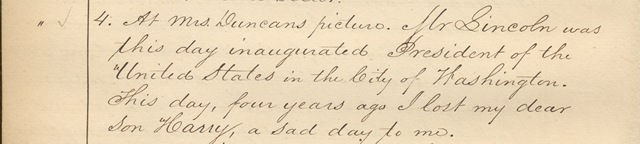 " 4. At Mrs. Duncans picture. Mr Lincoln was
this day inaugurated President of the
United States in the City of Washington.
This day, four years ago I lost my dear
Son Harry, a sad day to me.